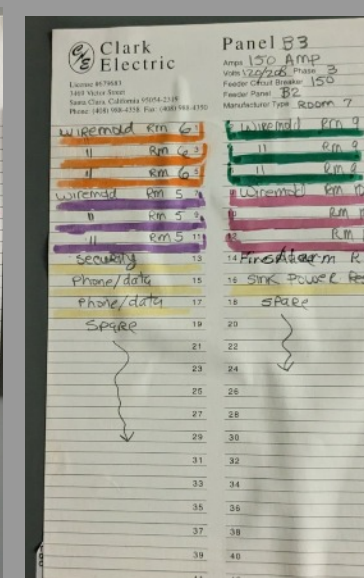 Clark
Electric
License #679683
3469 Victor Street
Santa Clara, California 95054-2319
Phone: (408) 988-4338 Fax: (408) 988-4350
Panel B3
Amps 150 AMP
Volts 120/208 Phase 3
Feeder Circuit Breaker 150
Feeder Panel B2
Manufacturer Type Room 7
Wiremold Rm 6 Wiremold Rm 9
" Rm 6 3 " Rm 9
" Rm 6 5 " Rm 9
Wiremold Rm 5 Wiremold Rm
" Rm 5 9 Rm
" Rm 5 11 Rm
Security 13 14 Fire Alarm R
Phone/data 15 16 Sink Power
Phone/data 17 18 Spare
Spare 19 20
21 22
23 24
25 26
27 28
29 30
31 32
33 34
35 36
37 38
39 40